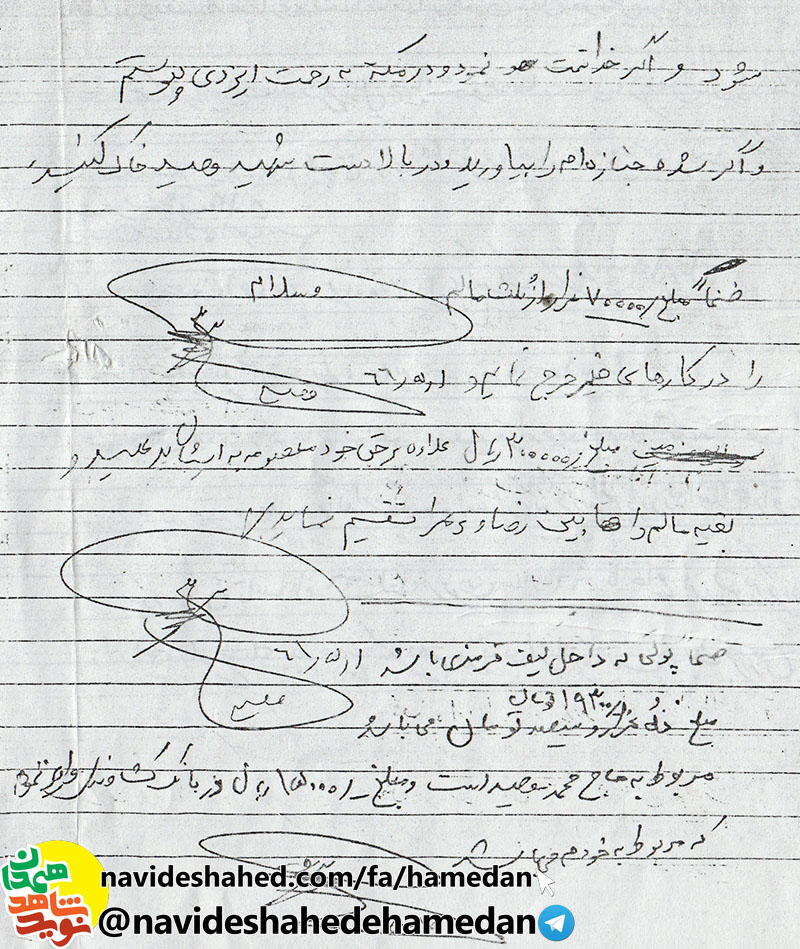 شود و اگر خدا قسمت نمود و در مکه به رحمت ایزدی پیوستم
و اگر شده جنازه‌ام را بیاورید و در بالا دست شهید وحید خاک کنید
ضمناً مبلغ ۷۰۰۰۰۰ از ثلث مالم
وسلام
را در کارهای خیر خرج نمایید و
مبلغ ۳۰۰۰۰۰ ریال علاوه بر حق خود معصومه به ایشان بدهید و
بقیه مالم را بین رضا و زهرا تقسیم نمایید
ضمناً پولی که داخل کیف قرمزی باشد
۱۹۳۰۰ تومان
مبلغ نوزده هزار و سیصد تومان می باشد و
مربوط به حاج محمد است و مبلغ ریال در بانک کشاورزی
که مربوط به خودم می باشد
همدان
نوید شاهد
navideshahed.com/fa/hamedan
@navideshahedehamedan